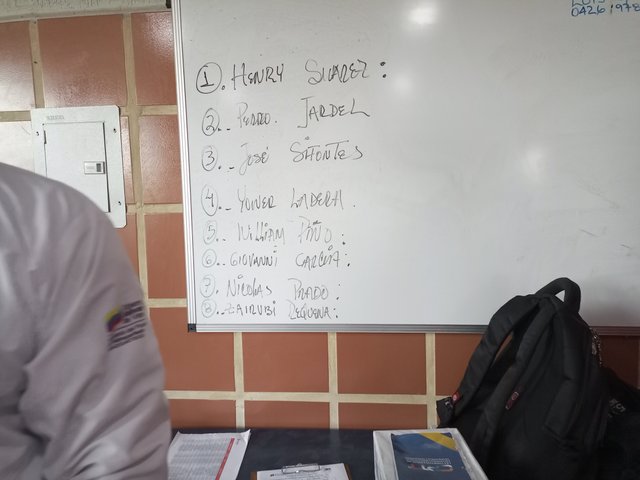 0426 1978
1. HENRY SUAREZ:
2.- PEDRO. JARDEL
3.- JOSÉ SIFONTES
4.- YOINER LADERA.
5.- WILLIAM PIÑO:
6.- GIOVANNI GARCIA:
7. NICOLAS PRADO:
8.- ZAIRUBI REQUENA: